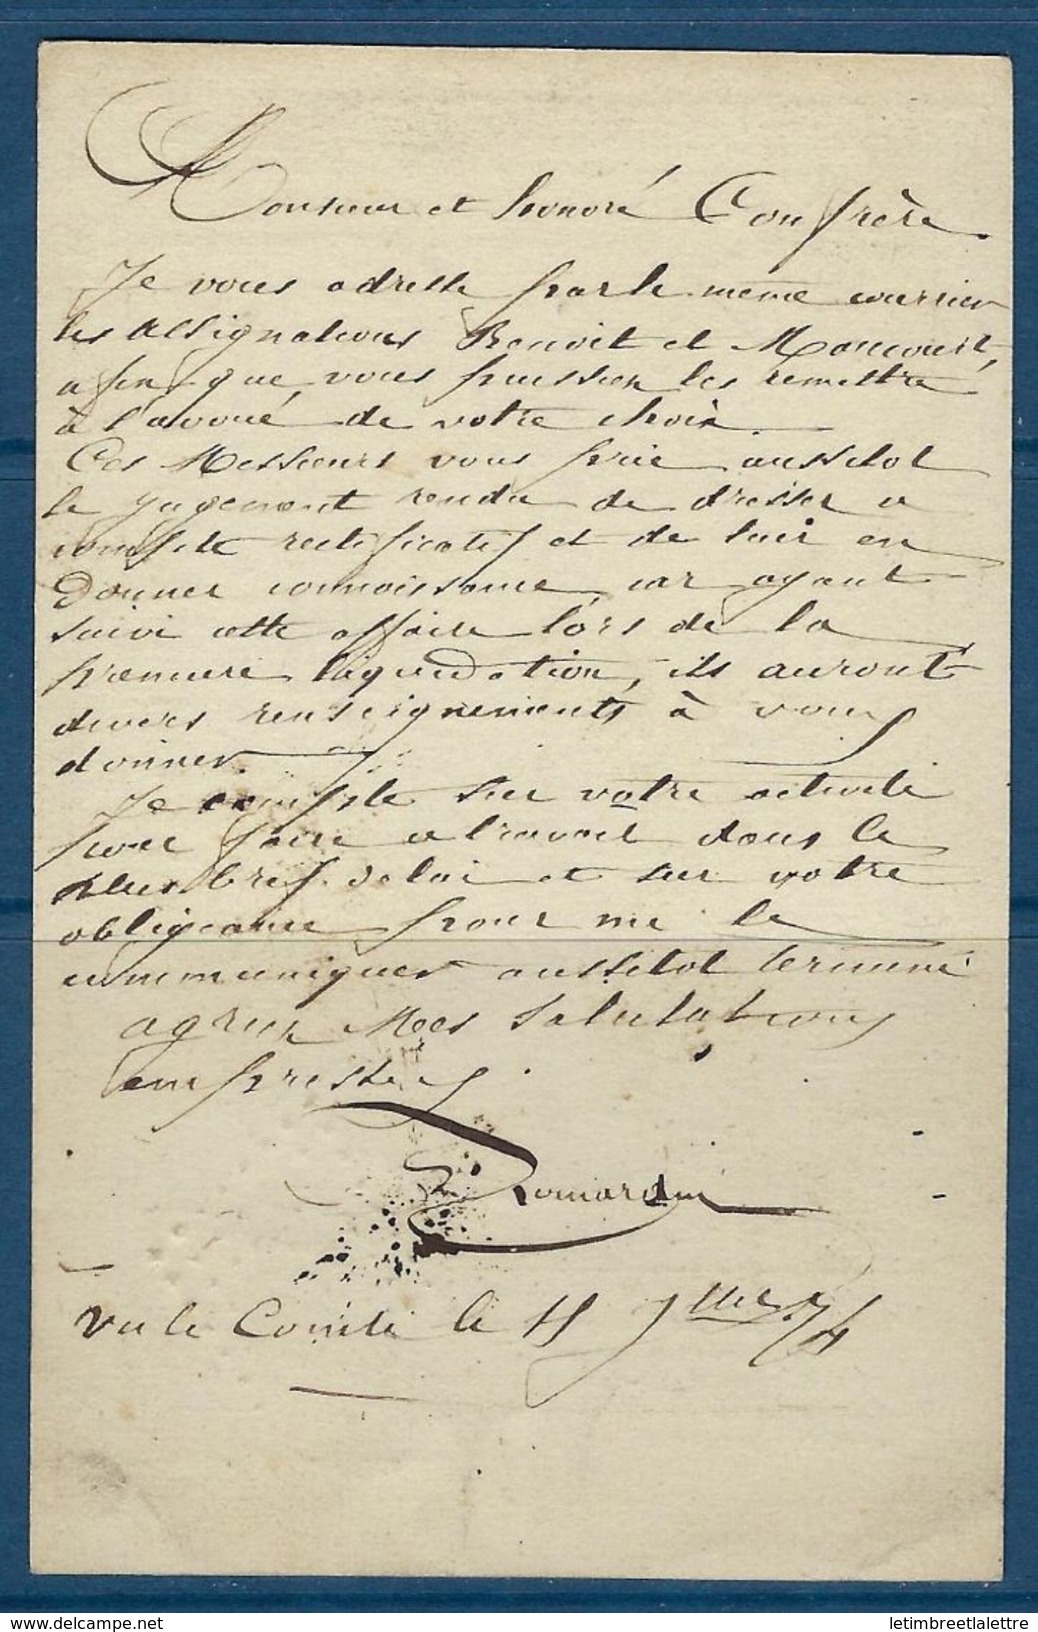 Monsieur et honoré Confrère
Je vous adresse par le même courrier
les assignations Benoit et Mancourt,
afin que vous puissiez les remettre
à l'avoué de votre choix.
Ces Messieurs vous prie aussitot
le jugement rendu de dresser a
compte rectificatif et de leur en
donner connaissance, car ayant
suivi cette affaire lors de la
première liquidation, ils auront
divers renseignements à vous
donner.
Je compte sur votre activité
pour faire a travail dans le
plus bref delai et sur votre
obligeance pour me le
communiquer aussitot terminé
agreez Mes Salutations
empressées.
le 9bre 74
delcampe.net
letimbreetlalettre